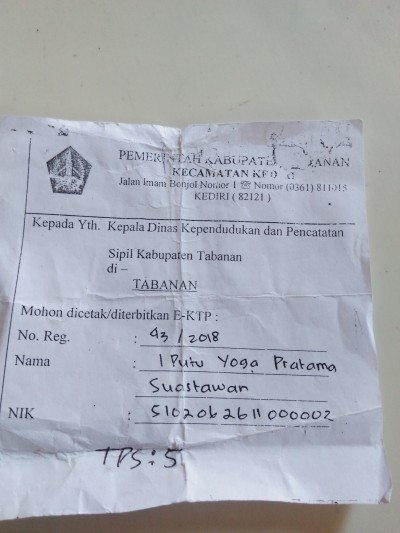 PEMERINTAH KABUPATEN TABANAN
KECAMATAN
Jalan Imam Bonjol Nomor 1 ☎ Nomor (0361) 811015
KEDIRI ( 82121 )
Kepada Yth. Kepala Dinas Kependudukan dan Pencatatan
Sipil Kabupaten Tabanan
di –
TABANAN
Mohon dicetak/diterbitkan E-KTP :
No. Reg. : 93 / 2018
Nama : I Putu Yoga Pratama
Suastawan
NIK : 5102062611000002
TPS : 5